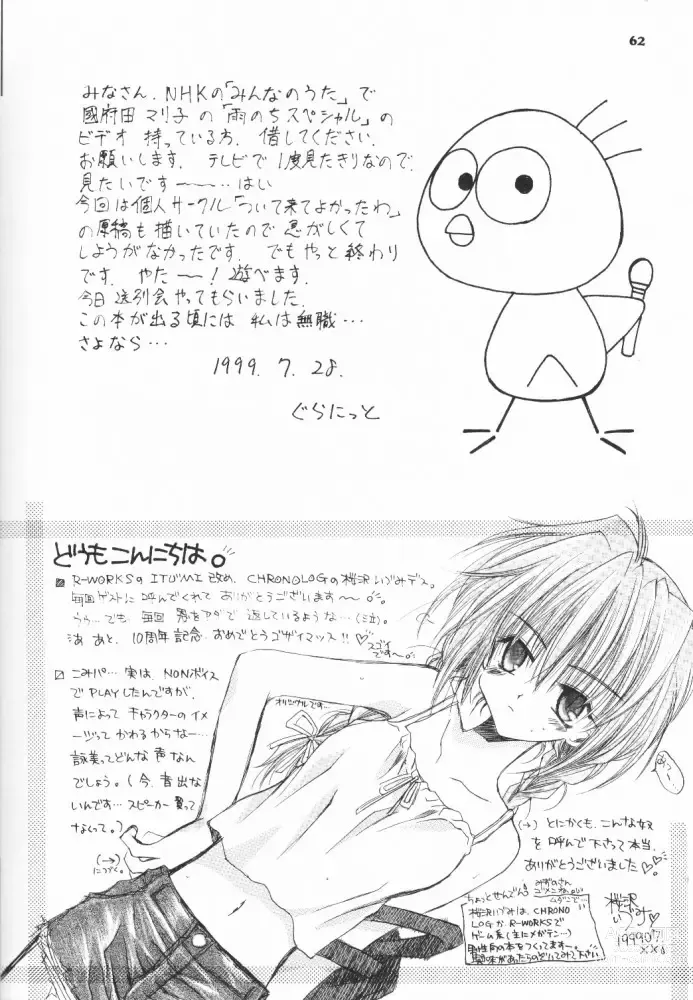 62
みなさん、NHKの「みんなのうた」で
國府田マリ子の「雨のちスペシャル」の
ビデオ 持っている方、借してください。
お願いします。テレビで1度見たきりなので、
見たいです〜〜…はい
今回は個人サークル「ついて来てよかったわ」
の原稿も描いていたので 忙しくて
しようがなかったです。でもやっと終わり
です。やたー〜!遊べます。
今日 送別会やってもらいました。
この本が出る頃には 私は無職…
さよなら…
1999. 7. 28.
ぐらにっと
どうもこんにちは。
R-WORKSのITUMI改め、CHRONOLOGの桜沢いづみデス。
毎回ゲストに呼んでくれてありがとうございます〜。
うぅ…でも、毎回恩をアダで返しているような…(泣)
あ、あと、10周年記念、おめでとうゴザイマッス!!♡
スゴイ
です〜。
こみパ…実は、NONボイス
でPLAYしたんですが、
声によってキャラクターのイメ
ージってかわるからなー…
詠美ってどんな声なん
でしょう。(今、音出な
いんです…スピーカー買って
なくって。)
(→)
につづく。
オリジナルです…
(→)とにかくも、こんな奴
を呼んで下さって本当、
ありがとうございました♡♡
ちょっとせんでん!
みずのさん
ゴメンね。
桜沢いづみは、CHRONO
LOGか、R-WORKSで
ゲーム系(主にメガテン…)
男性向の本をつくってます〜。
桜沢
いづみ♡
1999.07